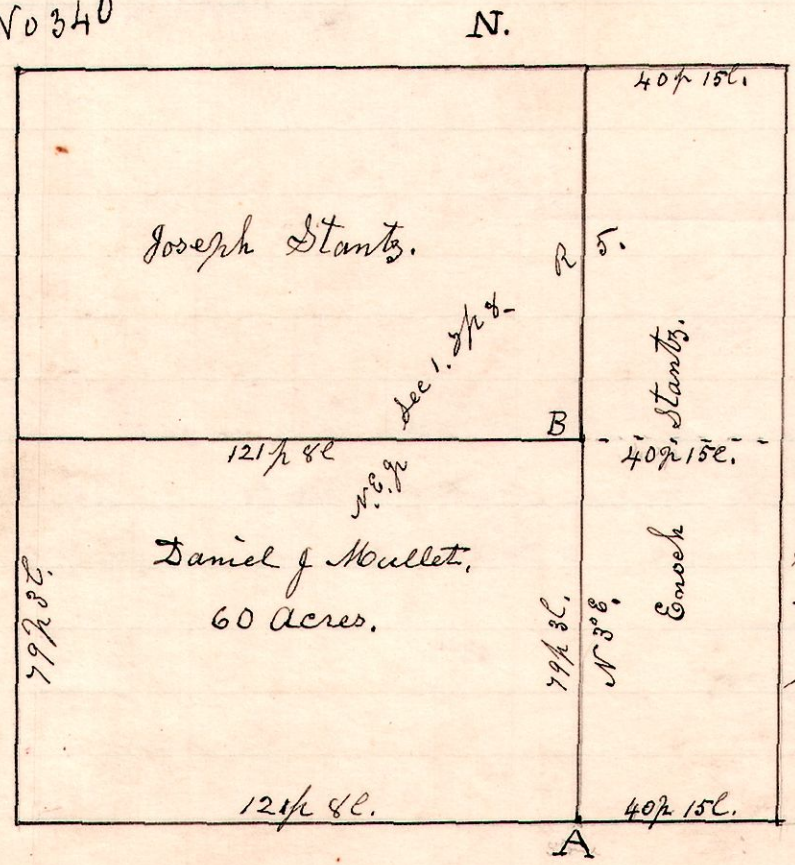 No 340
N.
40p 15l.
Joseph Stantz.
R 5.
Sec 1. Tp 8-
N.E. qr
Stantz.
B
121p 8l
40p 15l.
Daniel J Mullet,
60 Acres.
Enoch
79p 3l.
79p 3l.
N 3° E.
121p 8l.
40p 15l.
A